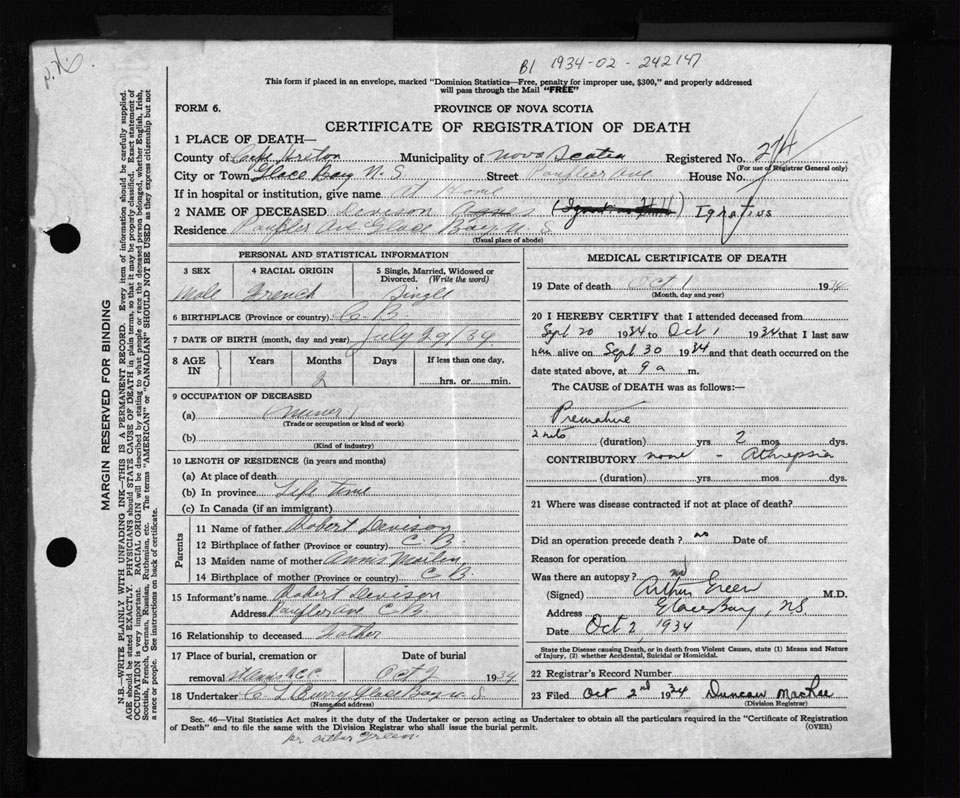 N.S.
B1 1934-02-242147
This form if placed in an envelope, marked "Dominion Statistics—Free, penalty for improper use, $300," and properly addressed
will pass through the Mail "FREE"
FORM 6. PROVINCE OF NOVA SCOTIA
CERTIFICATE OF REGISTRATION OF DEATH
1 PLACE OF DEATH—
County of Cape Breton Municipality of Nova Scotia Registered No. 274
(For use of Registrar General only)
City or Town Glace Bay N. S. Street Ave House No.
If in hospital or institution, give name At Home
2 NAME OF DECEASED Devison Agnes Ignatius
Residence Ave Glace Bay N. S.
(Usual place of abode)
PERSONAL AND STATISTICAL INFORMATION
3 SEX 4 RACIAL ORIGIN 5 Single, Married, Widowed or
Divorced. (Write the word)
Male French Single
6 BIRTHPLACE (Province or country) C B.
7 DATE OF BIRTH (month, day and year) July 29/34
8 AGE IN Years Months Days If less than one day,
2 hrs. or min.
9 OCCUPATION OF DECEASED
(a)
(Trade or occupation or kind of work)
(b)
(Kind of industry)
10 LENGTH OF RESIDENCE (in years and months)
(a) At place of death
(b) In province Life time
(c) In Canada (if an immigrant)
Parents
11 Name of father Robert Devison
12 Birthplace of father (Province or country) C. B.
13 Maiden name of mother Annie
14 Birthplace of mother (Province or country) C B.
15 Informant's name Robert Devison
Address Ave C. B.
16 Relationship to deceased Father
17 Place of burial, cremation or Date of burial
removal St Anns R.C.C. Oct 2 1934
18 Undertaker C L Curry Glace Bay N. S
(Name and address)
MEDICAL CERTIFICATE OF DEATH
19 Date of death Oct 1 1934
(Month, day and year)
20 I HEREBY CERTIFY that I attended deceased from
Sept 20 1934 to Oct 1 1934 that I last saw
him alive on Sept 30 1934 and that death occurred on the
date stated above, at 9 a m.
The CAUSE OF DEATH was as follows:—
Premature
(duration) yrs 2 mos. dys.
CONTRIBUTORY none - Athrepsia
(duration) yrs. mos. dys.
21 Where was disease contracted if not at place of death?
Did an operation precede death? no Date of
Reason for operation
Was there an autopsy? no
(Signed) Arthur Green M.D.
Address Glace Bay, NS
Date Oct 2, 1934
State the Disease causing Death, or in death from Violent Causes, state (1) Means and Nature
of Injury, (2) whether Accidental, Suicidal or Homicidal.
22 Registrar's Record Number
23 Filed Oct 2nd 1934 Duncan MacRae
(Division Registrar)
Sec. 46—Vital Statistics Act makes it the duty of the Undertaker or person acting as Undertaker to obtain all the particulars required in the "Certificate of Registration
of Death" and to file the same with the Division Registrar who shall issue the burial permit. (OVER)
pr Arthur Green.
MARGIN RESERVED FOR BINDING
N.B.—WRITE PLAINLY WITH UNFADING INK—THIS IS A PERMANENT RECORD. Every item of information should be carefully supplied.
AGE should be stated EXACTLY. PHYSICIANS should STATE CAUSE OF DEATH in plain terms, so that it may be properly classified. Exact statement of
OCCUPATION is very important. RACIAL ORIGIN will be described by stating to what people or race the deceased person belonged, whether English, Irish,
Scottish, French, German, Russian, Ruthenian, etc. The terms "AMERICAN" or "CANADIAN" SHOULD NOT BE USED as they express citizenship but not
a race or people. See instructions on back of certificate.